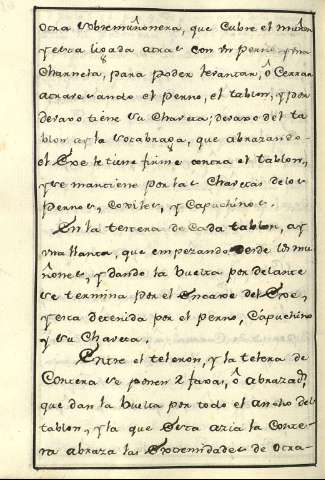 otra sobremuñonera, que cubre el muñon
y esta ligada atras con un perno, y una
charnela, para poder levantar, ô Cerrar
atravesando el perno, el tablon, y por
devaxo tiene su Chaveta; devaxo del ta
blon ay la sotabraga, que abrazando
el Exe le tiene firme contra el tablon,
y se mantiene por las Chavetas de los
Pernos, Coviles, y Capuchinos.
En la tercera de Cada tablon, ay
una llanta, que empezando desde los mu
ñones, y dando la buelta por delante
se termina por el Encaxe del Exe,
y esta detenida por el perno, Capuchino
y su Chaveta.
Entre el teleron, y la tetera de
Contera se ponen 2 faxas, ô abrazads.
que dan la buelta por todo el ancho del
tablon, y la que Esta azia la Conte-
ra abraza las Extremidades de otra-